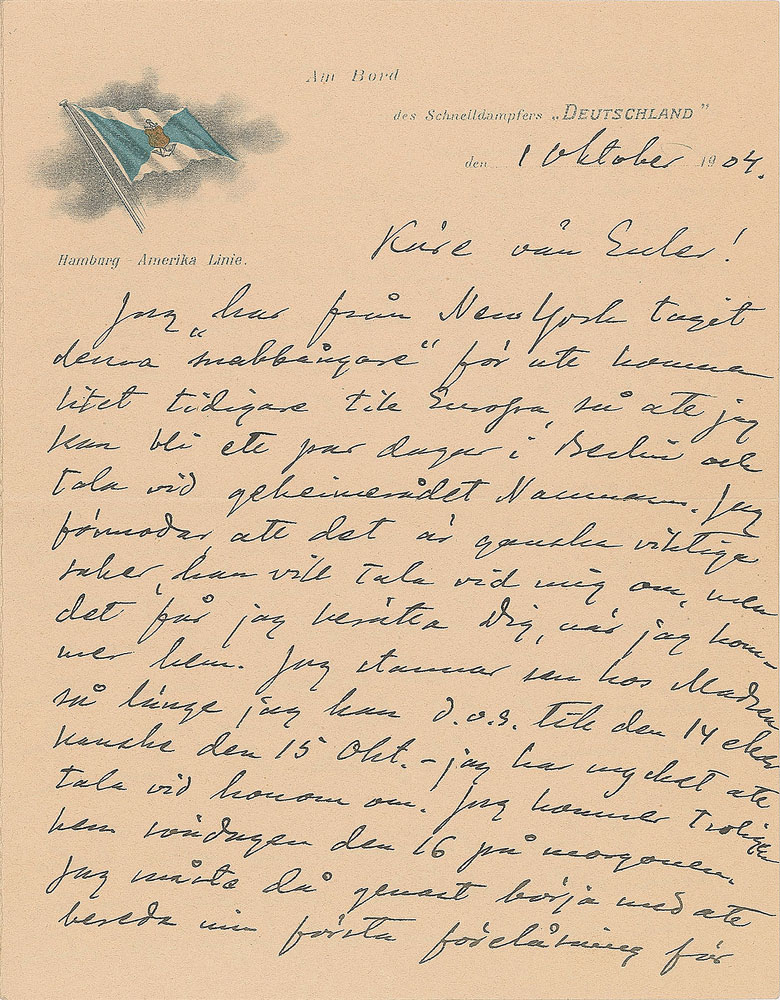 Am Bord
des Schnelldampfers „DEUTSCHLAND”
den 1 Oktober 1904.
Hamburg-Amerika Linie.
Käre vän Euler!
Jag har från New York tagit
denna „snabbångare“ för att komma
litet tidigare till Europa, så att jag
kan bli ett par dagar i Berlin och
tala vid geheimerådet Naumann. Jag
förmodar att det är ganska viktiga
saker, han vill tala vid mig om, men
det får jag berätta Dig, när jag kom-
mer hem. Jag stannar sen hos Madsen
så länge jag kan d.v.s. till den 14 eller
kanske den 15 Okt. – jag har mycket att
tala vid honom om. Jag kommer troligen
hem söndagen den 16 på morgonen.
Jag måste då genast börja med att
bereda min första föreläsning för